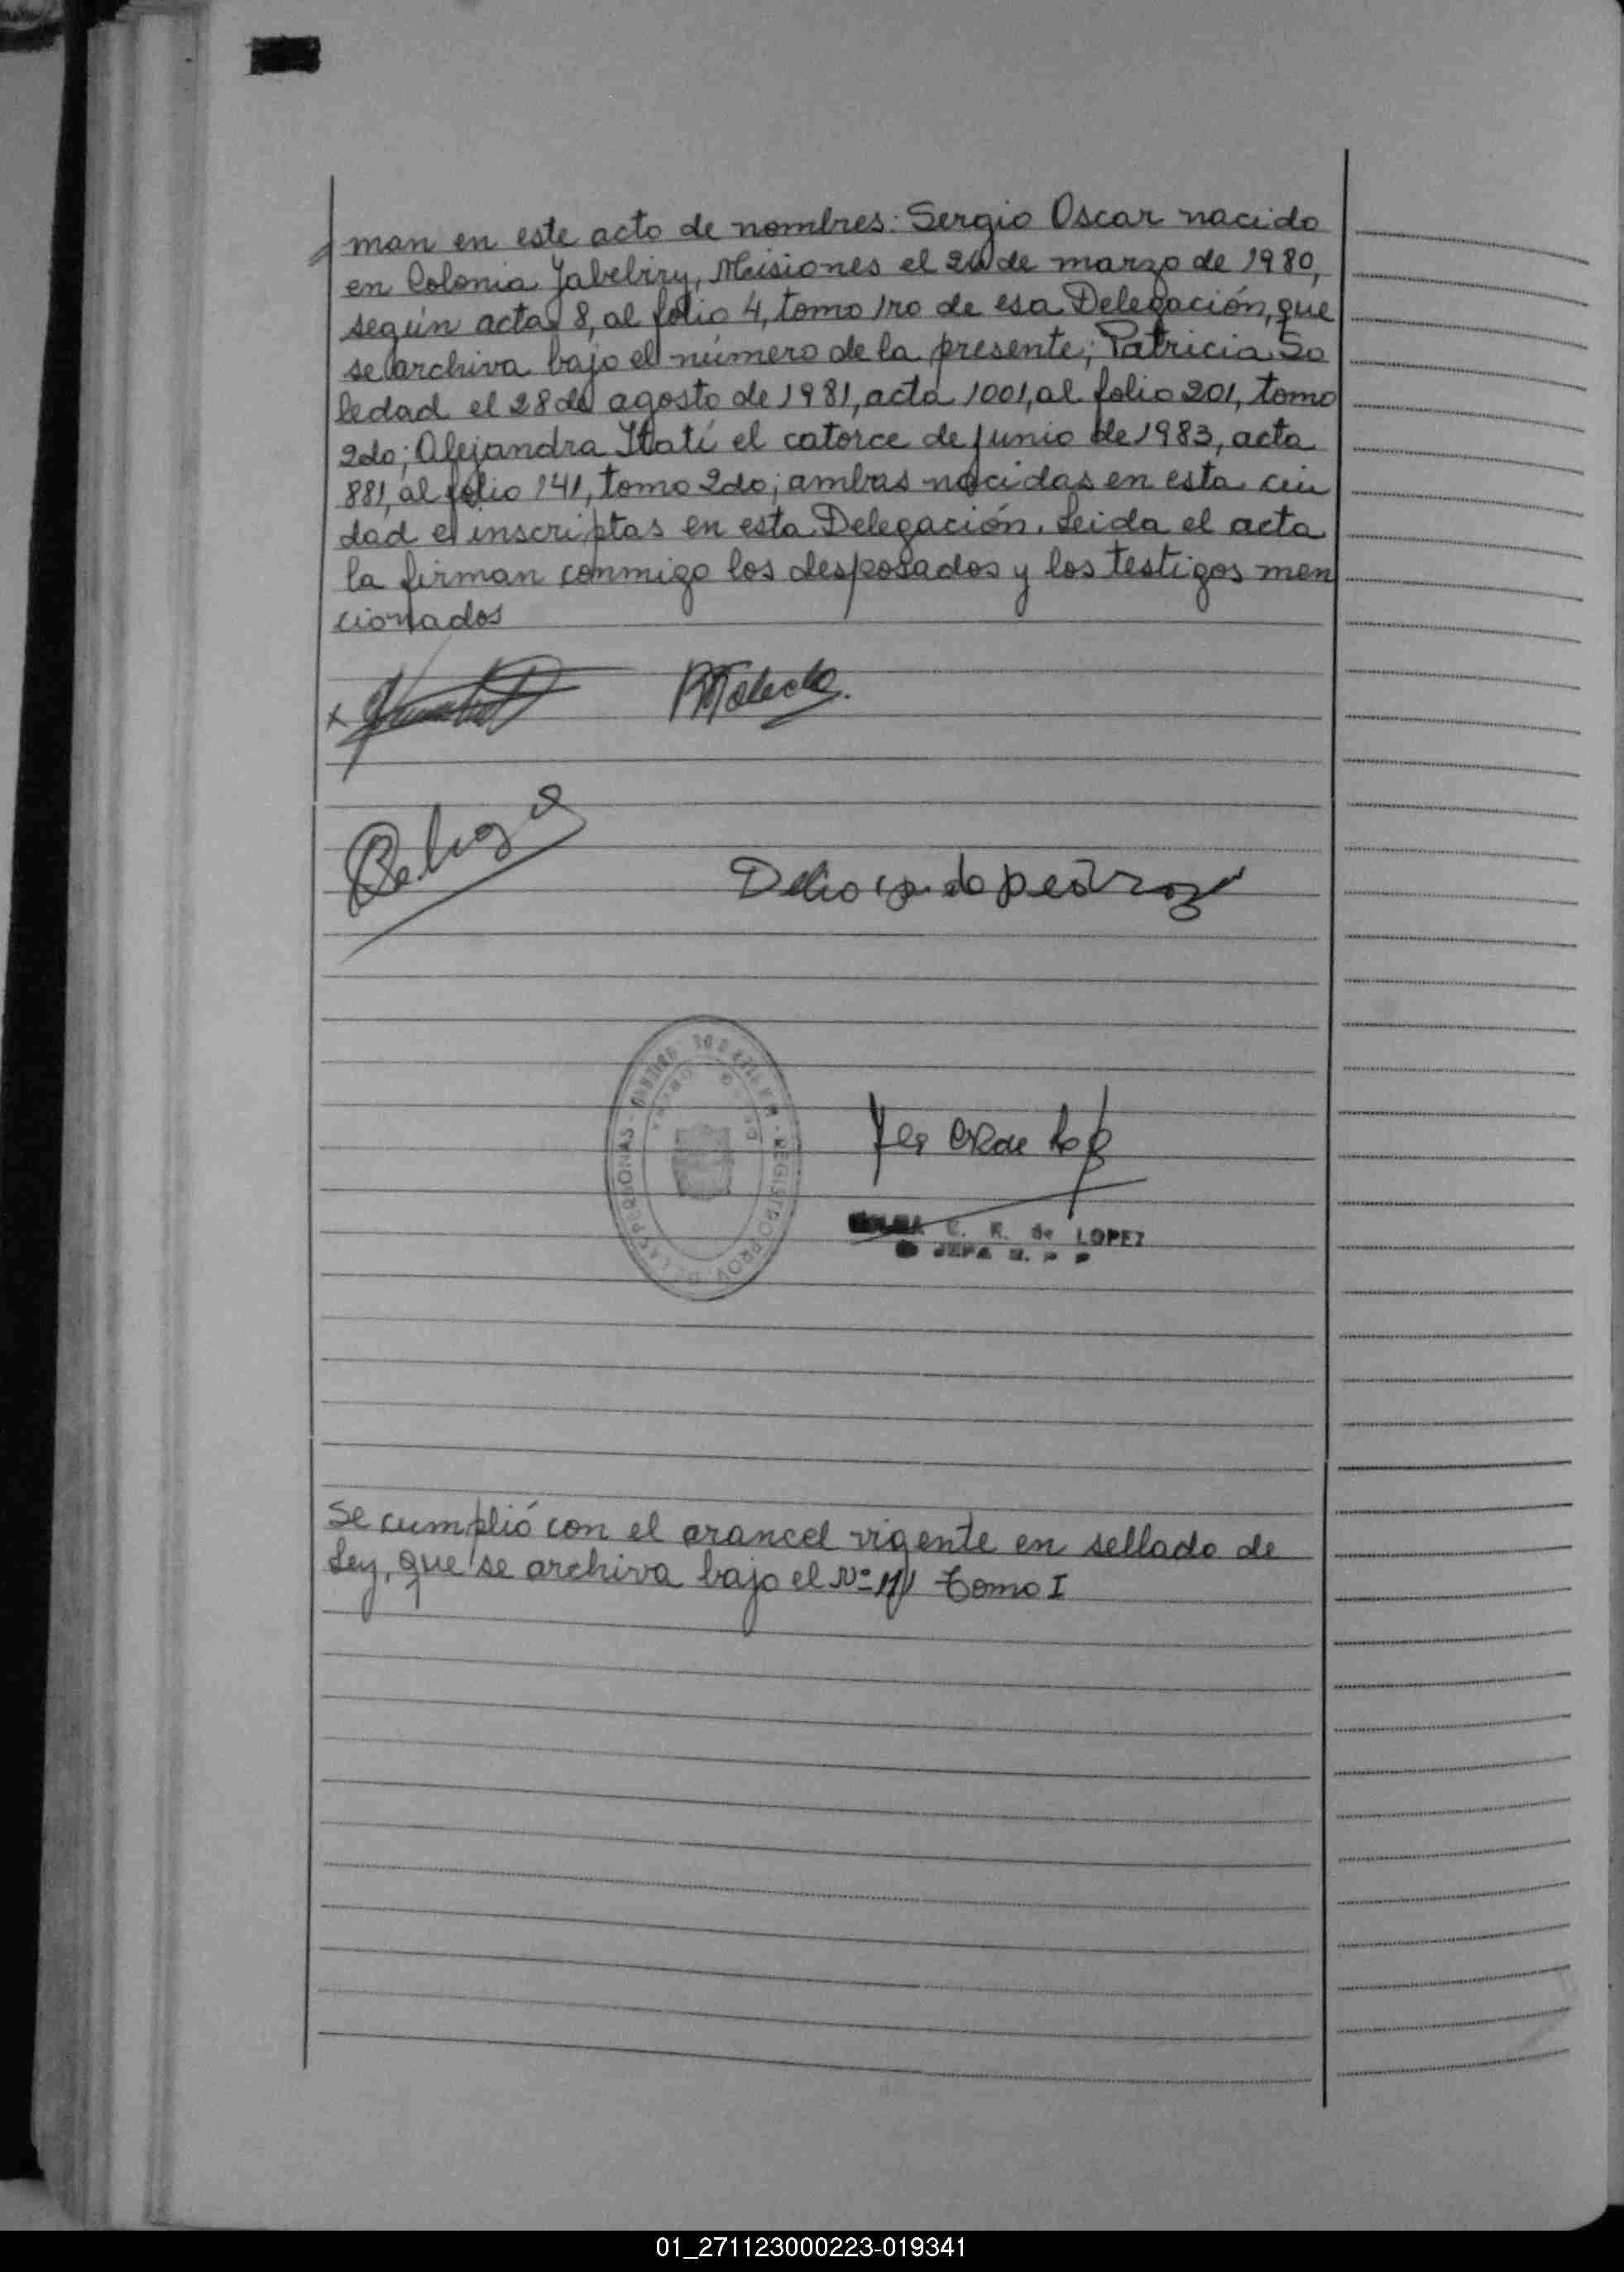 man en este acto de nombres: Sergio Oscar nacido
en Colonia Jabebiry, Misiones el de marzo de 1980,
según acta 8, al folio 4, tomo 1ro de esa Delegación, que
se archiva bajo el número de la presente; Patricia So
ledad el 28 de agosto de 1981, acta 1001, al folio 201, tomo
2do; Alejandra Itatí el catorce de junio de 1983, acta
881, al folio 141, tomo 2do; ambas nacidas en esta ciu
dad e inscriptas en esta Delegación. Leida el acta
la firman conmigo los desposados y los testigos men
cionados
Pedroza
REGISTRO PROV. DE LAS PERSONAS
C. R. de LOPEZ
JEFA
Se cumplió con el arancel vigente en sellado de
Ley, que se archiva bajo el Nº Tomo I
01_271123000223-019341